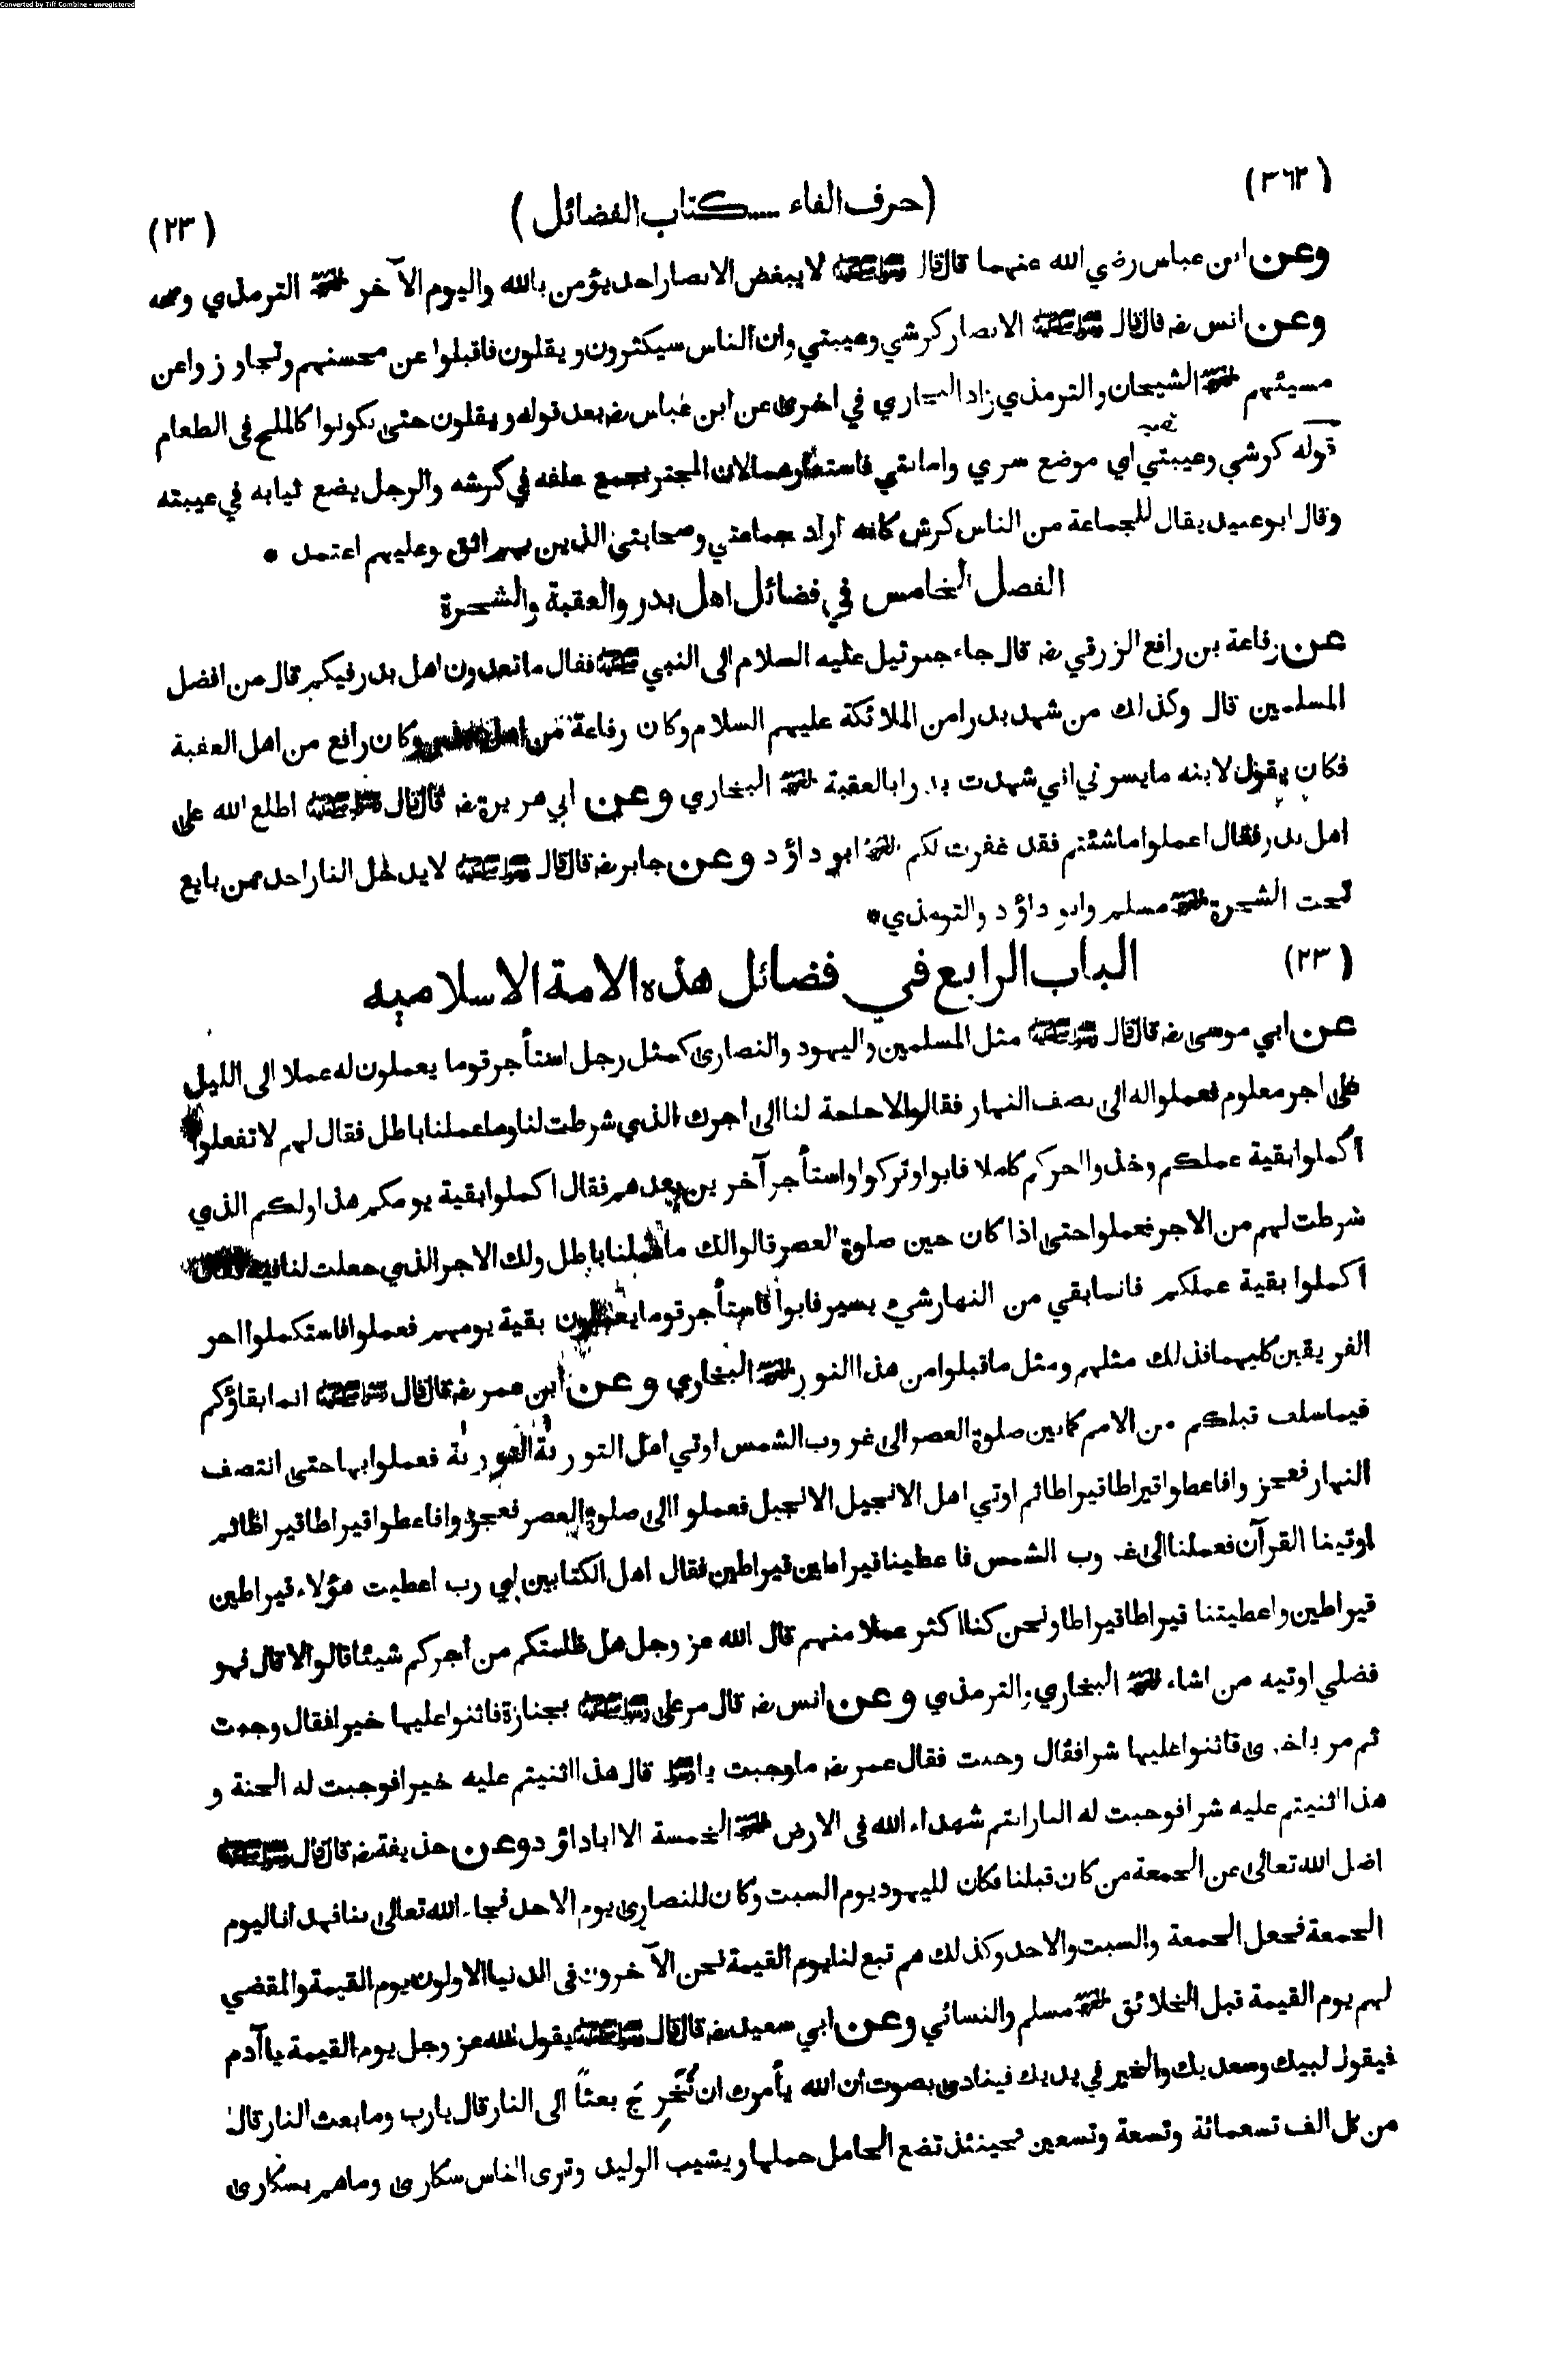 Converted by Tiff Combine - unregistered
(٣٦٢)
(حرف الفاء ..... كتاب الفضائل)
(٢٣)
وعن ابن عباس رضي الله عنهما قال قال رسول الله صلى الله عليه وسلم لا يبغض الانصار احد يؤمن بالله واليوم الآخر اخرجه الترمذي وصححه
وعن انس رضـ قال قال رسول الله صلى الله عليه وسلم الانصار كرشي وعيبتي وان الناس سيكثرون ويقلون فاقبلوا عن محسنهم وتجاوزوا عن
مسيئهم اخرجه الشيخان والترمذي زاد البخاري في اخرى عن ابن عباس رضـ بعد قوله ويقلون حتى يكونوا كالملح فى الطعام
قوله كرشي وعيبتي اي موضع سري وامانتي فاستعار لان المجتر يجمع علفه في كرشه والرجل يضع ثيابه في عيبته
وقال ابو عبيد يقال للجماعة من الناس كرش كانه اراد جماعتي وصحابتي الذين بهم اثق وعليهم اعتمد *
الفصل الخامس في فضائل اهل بدر والعقبة والشجرة
عن رفاعة بن رافع الزرقي رضـ قال جاء جبرئيل عليه السلام الى النبي صلى الله عليه وسلم فقال ما تعدون اهل بدر فيكم قال من افضل
المسلمين قال وكذلك من شهد بدرا من الملائكة عليهم السلام وكان رفاعة من اهل بدر وكان رافع من اهل العقبة
فكان يقول لابنه ما يسرني اني شهدت بدرا بالعقبة اخرجه البخاري وعن ابي هريرة رضـ قال قال رسول الله صلى الله عليه وسلم اطلع الله على
اهل بدر فقال اعملوا ما شئتم فقد غفرت لكم اخرجه ابو داؤد وعن جابر رضـ قال قال رسول الله صلى الله عليه وسلم لا يدخل النار احد ممن بايع
تحت الشجرة اخرجه مسلم وابو داؤد والترمذي *
(٢٣) الباب الرابع في فضائل هذه الامة الاسلاميه
عن ابي موسى رضـ قال قال رسول الله صلى الله عليه وسلم مثل المسلمين واليهود والنصارى كمثل رجل استأجر قوما يعملون له عملا الى الليل
على اجر معلوم فعملوا له الى نصف النهار فقالوا لا حاجة لنا الى اجرك الذي شرطت لنا وما عملنا باطل فقال لهم لا تفعلوا
اكملوا بقية عملكم وخذوا اجركم كاملا فابوا وتركوا واستأجر آخرين بعدهم فقال اكملوا بقية يومكم هذا ولكم الذي
شرطت لهم من الاجر فعملوا حتى اذا كان حين صلوة العصر قالوا لك ما عملنا باطل ولك الاجر الذي جعلت لنا فيه فقال
اكملوا بقية عملكم فانما بقي من النهار شيء يسير فابوا فاستأجر قوما يعملون بقية يومهم فعملوا فاستكملوا اجر
الفريقين كليهما فذلك مثلهم ومثل ما قبلوا من هذا النور اخرجه البخاري وعن ابن عمر رضـ قال قال رسول الله صلى الله عليه وسلم انما بقاؤكم
فيما سلف قبلكم من الامم كما بين صلوة العصر الى غروب الشمس اوتي اهل التورىة التورىة فعملوا بها حتى انتصف
النهار فعجزوا فاعطوا قيراطا قيراطا ثم اوتي اهل الانجيل الانجيل فعملوا الى صلوة العصر فعجزوا فاعطوا قيراطا قيراطا ثم
اوتينا القرآن فعملنا الى غروب الشمس فاعطينا قيراطين قيراطين فقال اهل الكتابين اي رب اعطيت هؤلاء قيراطين
قيراطين واعطيتنا قيراطا قيراطا ونحن كنا اكثر عملا منهم قال الله عز وجل هل ظلمتكم من اجركم شيئا قالوا لا قال فهو
فضلي اوتيه من اشاء اخرجه البخاري والترمذي وعن انس رضـ قال مر على رسول الله صلى الله عليه وسلم بجنازة فاثنوا عليها خيرا فقال وجبت
ثم مر باخرى فاثنوا عليها شرا فقال وجبت فقال عمر رضـ ما وجبت يا رسول الله قال هذا اثنيتم عليه خيرا فوجبت له الجنة و
هذا اثنيتم عليه شرا فوجبت له النار انتم شهداء الله فى الارض اخرجه الخمسة الا ابا داؤد وعن حذيفة رضـ قال قال رسول الله صلى الله عليه وسلم
اضل الله تعالى عن الجمعة من كان قبلنا فكان لليهود يوم السبت وكان للنصارى يوم الاحد فجاء الله تعالى بنا فهدانا ليوم
الجمعة فجعل الجمعة والسبت والاحد وكذلك هم تبع لنا يوم القيمة نحن الآخرون فى الدنيا الاولون يوم القيمة والمقضي
لهم يوم القيمة قبل الخلائق اخرجه مسلم والنسائي وعن ابي سعيد رضـ قال قال رسول الله صلى الله عليه وسلم يقول الله عز وجل يوم القيمة يا آدم
فيقول لبيك وسعديك والخير في يديك فينادى بصوت ان الله يأمرك ان تُخْرِجَ بعثاً الى النار قال يا رب وما بعث النار قال
من كل الف تسعمائة وتسعة وتسعين فحينئذ تضع الحامل حملها ويشيب الوليد وترى الناس سكارى وما هم بسكارى